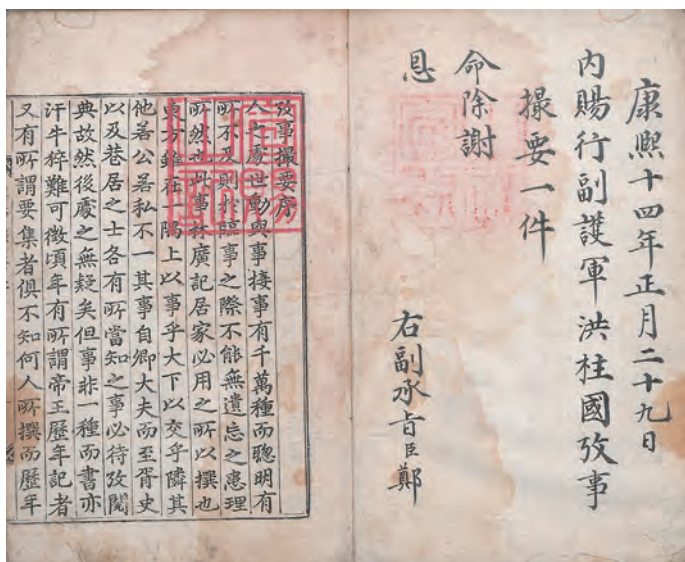 康熙十四年正月二十九日
內賜行副護軍洪柱國攷事
撮要一件
命除謝
恩
右副承旨臣鄭
攷事撮要序
人之處世動與事接事有千萬種而聰明有
所不及則於臨事之際不能無遺忘之患理
所然也此事林廣記居家必用之所以撰也
東方雖在一隅上以事乎大下以交乎隣其
他若公若私不一其事自卿大夫而至胥史
以及巷居之士各有所當知之事必待攷閱
典故然後處之無疑矣但事非一種而書亦
汗牛猝難可徵頃年有所謂帝王歷年記者
又有所謂要集者俱不知何人所撰而歷年